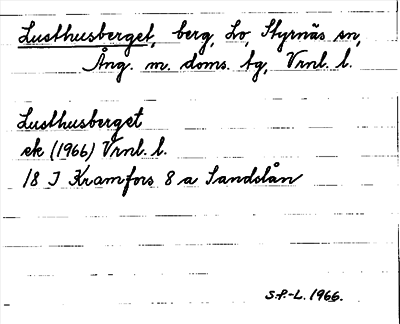 Lusthusberget, berg, Lo, Styrnäs sn,
Ång. m. doms. tg, Vrnl. l.
Lusthusberget
ek (1966) Vrnl. l.
18 J Kramfors 8 a Sandslån
S.P.-L. 1966.